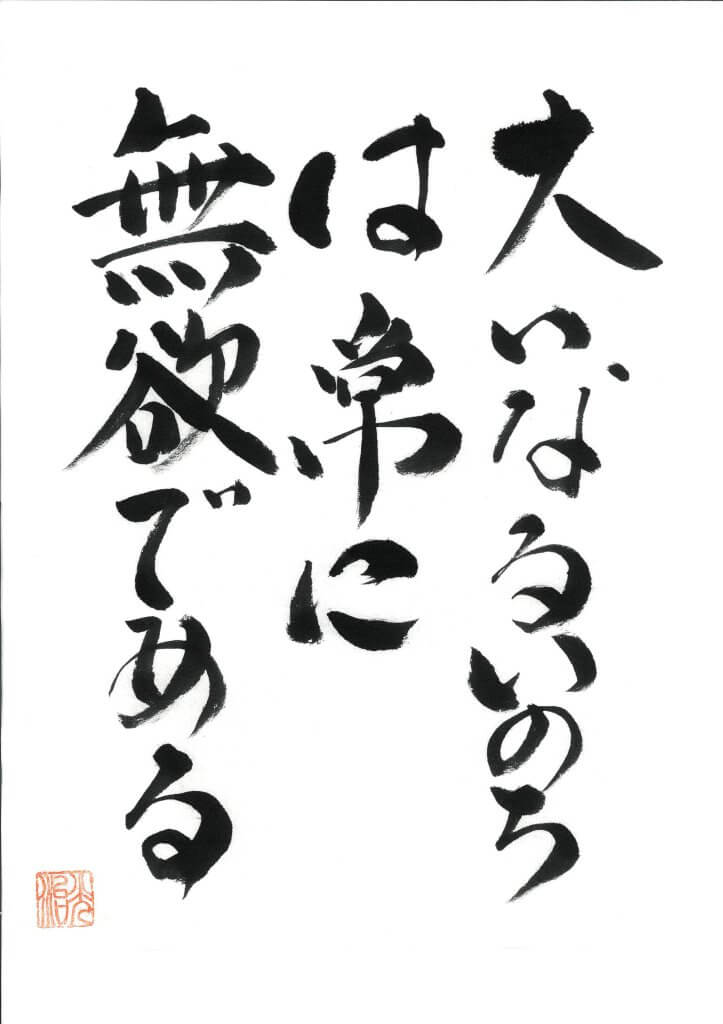 大いなるいのち
は常に
無欲である